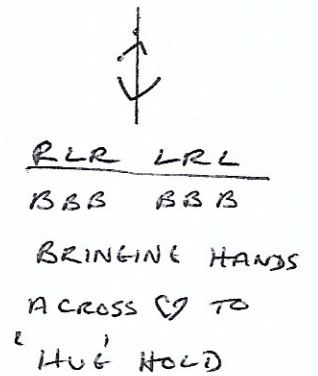 RLR LRL
BBB BBB
BRINGING HANDS
ACROSS ♡ TO
'HUG' HOLD